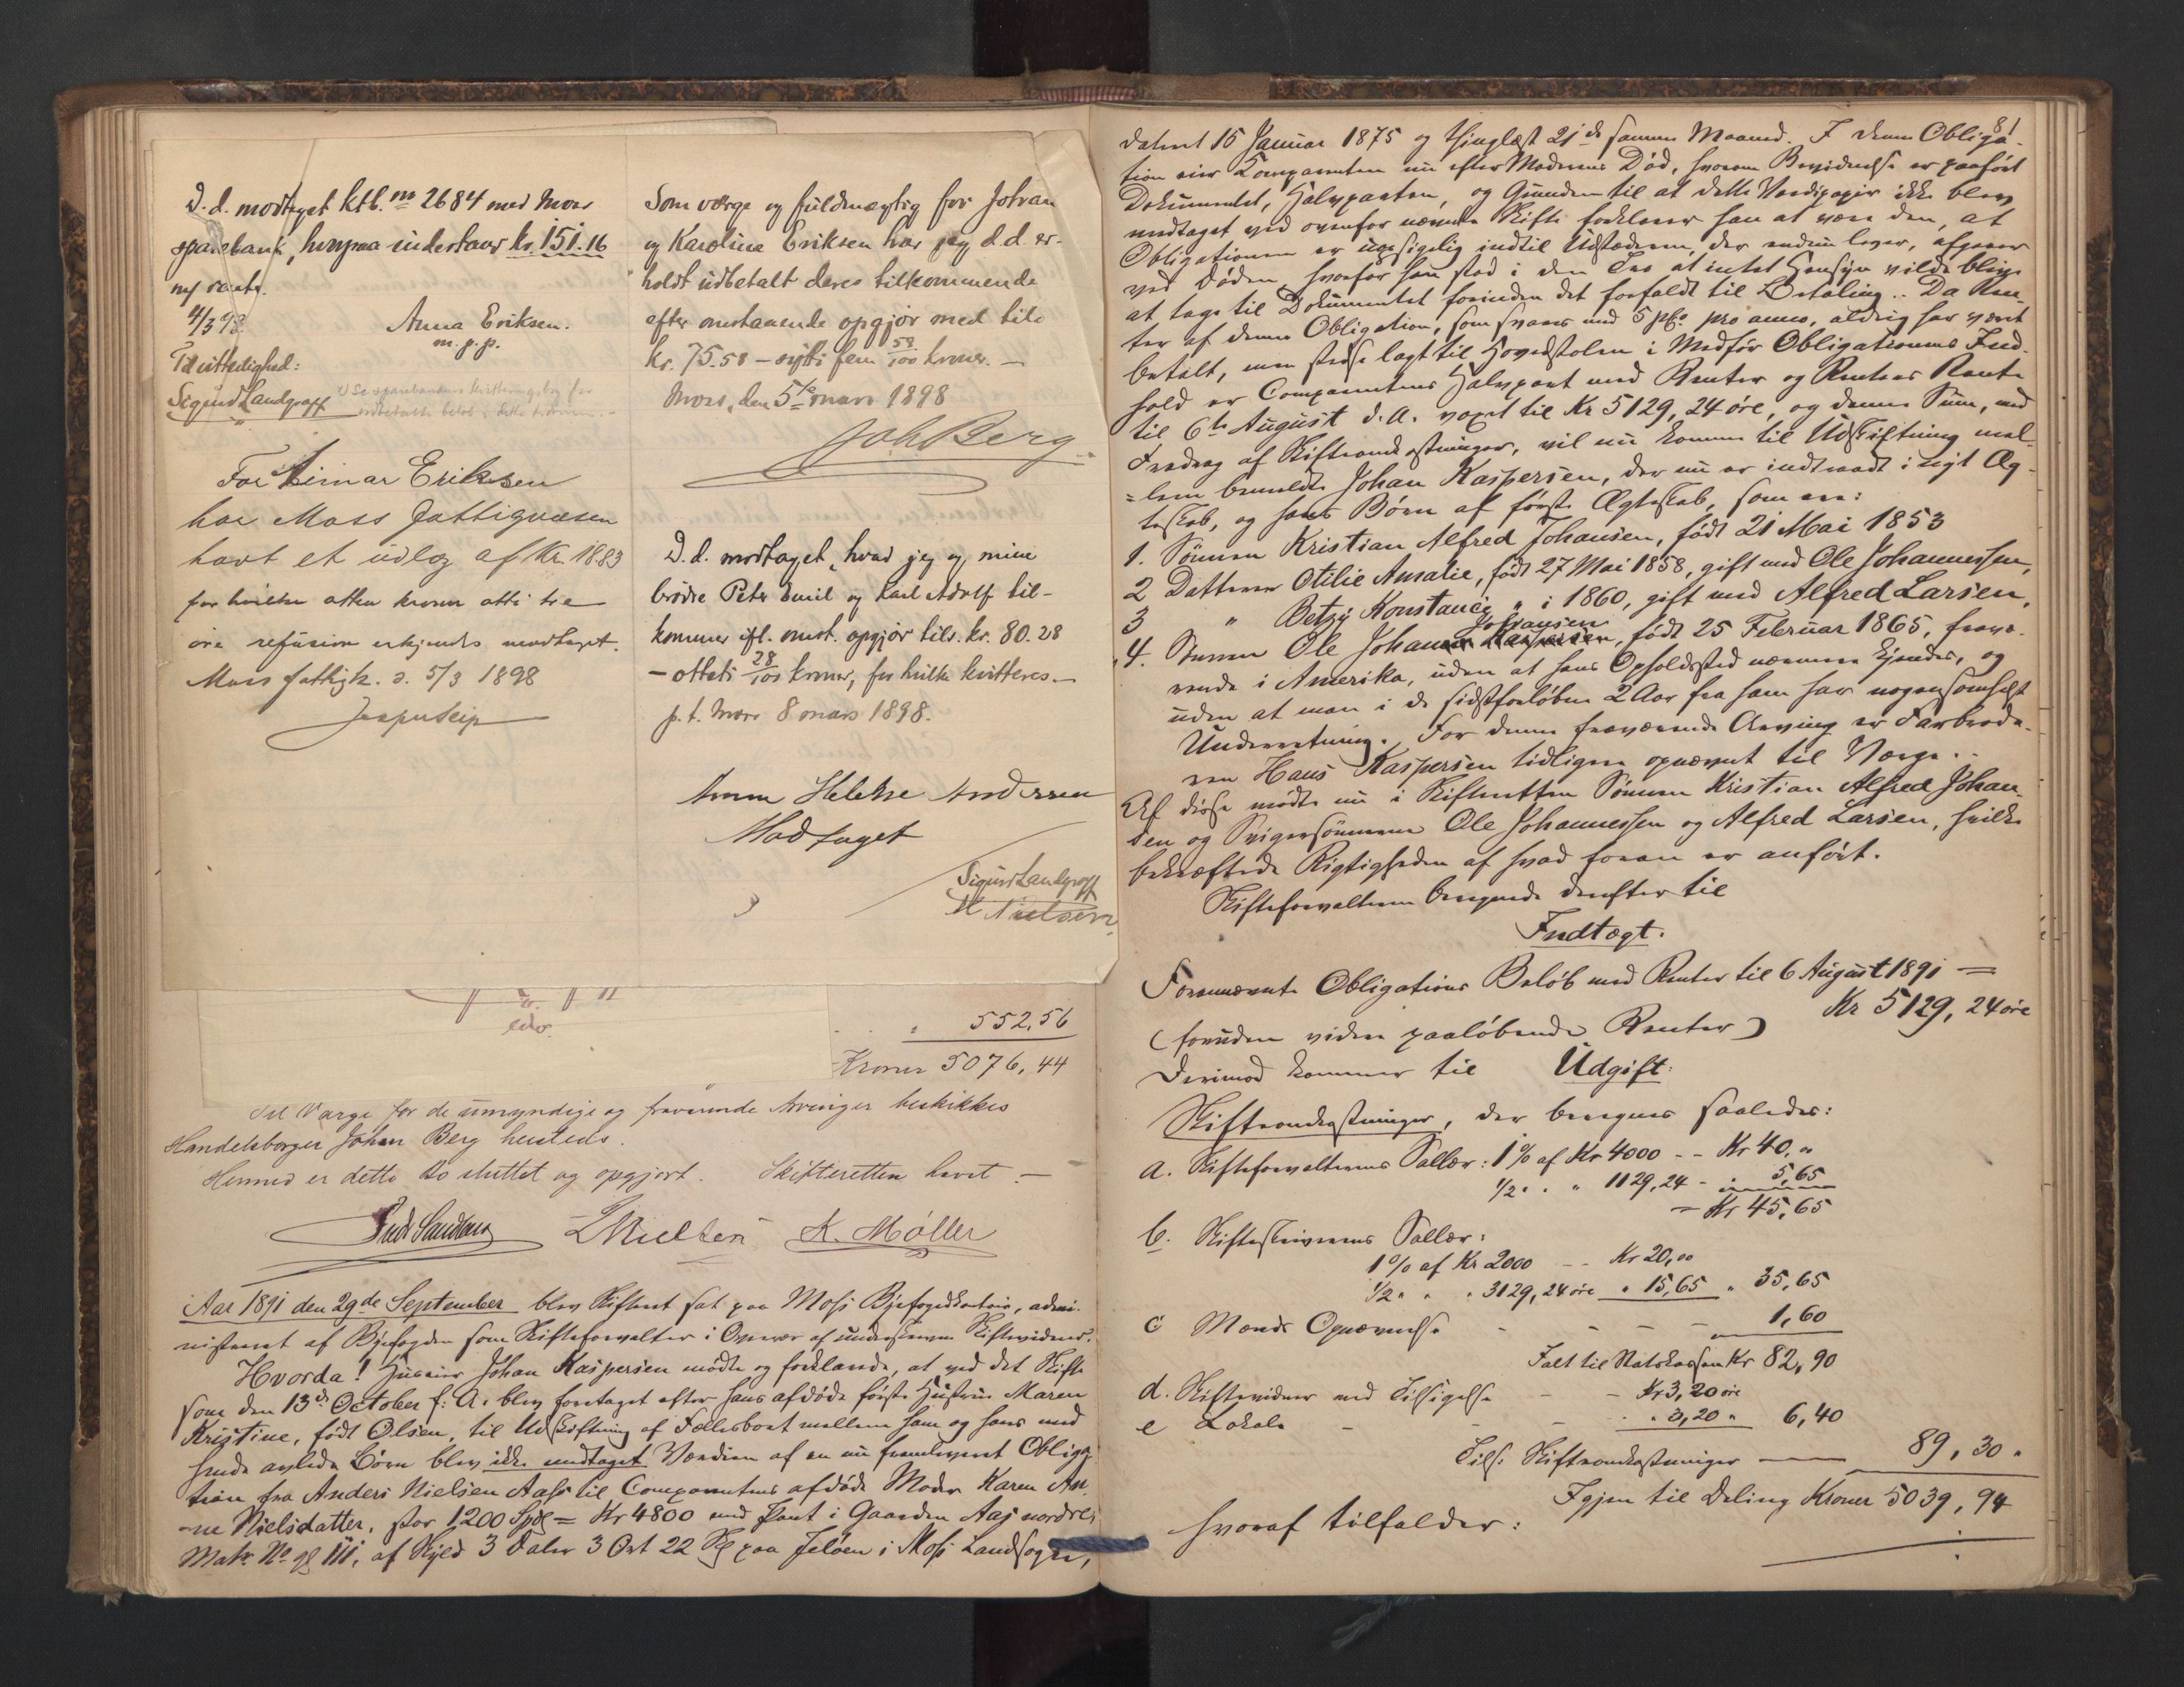 D. d. modtaget ktb. no 2684 med Moss
sparebank, hvorpaa indestaar kr. 151.16
m/ rente.
4/3 98.
Anna Eriksen.
m. p. p.
Til vitterlighed:
Sigurd Landgraff
x) Se sparebankens kvitteringsbog for
udbetalte beløb i dette
For Einar Eriksen
har Moss Fattigvæsen
havt et udlæg af Kr. 18.83
for hvilke atten kroner otti tre
øre refusion erkjendes modtaget.
Moss fattigk. d. 5/3 1898
Jesper Seip
Som værge og fuldmægtig for Johan
og Karoline Eriksen har jeg d.d. er-
holdt udbetalt deres tilkommende
efter omstaaende opgjør med tils.
kr. 75.58 – sytti fem 58/100 kroner. –
Moss, den 5te mars 1898
Joh Berg
D. d. modtaget, hvad jeg og mine
brødre Peter Emil og Karl Adolf til-
kommer ifl. omst. opgjør tils. kr. 80.28
– otteti 28/100 kroner, for hvilke kvitteres. –
p. t. Moss 8 mars 1898.
Anna Helene Andersen
Modtaget
Sigurd Landgraff
M Nielsen
552,56
Kroner 5076,44
Til Værge for de umyndige og fraværende Arvinger beskikkes
Handelsborger Johan Berg hersteds.
Hermed er dette Bo sluttet og opgjort. Skifteretten hævet. –
Nielsen K. Møller
Aar 1891 den 29de September blev Skifteret sat paa Moss Byfogedkontoir, admi-
nistreret af Byfogden som Skifteforvalter i Overvær af underskrevne Skiftevidner.
Hvorda! Huseier Johan Kaspersen mødte og forklarede, at ved det Skifte
som den 13de October f: A: blev foretaget efter hans afdøde første Hustru Maren
Kristine, født Olsen, til Udskiftning af Fællesboet mellem ham og hans med
hende avlede Børn blev ikke medtaget Værdien af en nu fremleveret Obliga-
tion fra Anders Nielsen Aass til Comparentens afdøde Moder Karen An-
ne Nielsdatter, stor 1200 Spd = Kr 4800 med Pant i Gaarden Aas nordre,
Matr. No 98 III, af Skyld 3 Daler 3 Ort 22 Sk paa Jeløen i Moss Landsogn,
81
dateret 15 Januar 1875 og thinglæst 21de samme Maaned. I denne Obliga-
tion eier Comparenten nu efter Moderens Død, hvorom Bevidnelse er paaført
Dokumentet, Halvparten, og Grunden til at dette Værdipapir ikke blev
medtaget ved ovenfor nævnte Skifte forklarer han at være den, at
Obligationen er uopsigelig indtil Udstederen, der endnu lever, afgaar
ved Døden, hvorfor han stod i den Tro at intet Hensyn vilde blive
at tage til Dokumentet forinden det forfaldt til Betaling. Da Ren-
ter af denne Obligation, som svares med 5 pCt. pro anno, aldrig har været
betalt, men stedse lagt til Hovedstolen i Medfør Obligationens Ind-
hold er Comparentens Halvpart med Renter og Renters Rente
til 6te August d. A. voxet til Kr 5129, 24 øre, og denne Sum, med
Fradrag af Skifteomkostninger, vil nu komme til Udskiftning mel-
=lem bemeldte Johan Kaspersen, der nu er indtraadt i nyt Æg-
teskab, og hans Børn af første Ægteskab, som ere:
1. Sønnen Kristian Alfred Johansen, født 21 Mai 1853
2 Datteren Otilie Amalie, født 27 Mai 1858, gift med Ole Johannessen,
3 " Betzy Konstance " i 1860, gift med Alfred Larsen,
4. Sønnen Ole Johan Johansen, født 25 Februar 1865, fravæ-
rende i Amerika, uden at hans Opholdssted nærmere kjendes, og
uden at man i de sidstforløbne 2 Aar fra ham har nogensomhelst
Underretning. For denne fraværende Arving er Farbrode-
ren Hans Kaspersen tidligere opnævnt til Værge. .
Af disse mødte nu i Skifteretten Sønnen Kristian Alfred Johan-
sen og Svigersønnerne Ole Johannessen og Alfred Larsen, hvilke
bekræftede Rigtigheden af hvad foran er anført.
Skifteforvalteren beregnede derefter til
Indtægt.
Forannævnte Obligations Beløb med Renter til 6 August 1891 =
Kr 5129, 24 øre
(foruden videre paaløbende Renter)
Derimod kommer til Udgift:
Skifteomkostninger, der beregnes saaledes:
a. Skifteforvalterens Sallær: 1 % af Kr 4000 - - Kr 40, "
1/2 " . " 1129,24 - " 5,65
= Kr 45,65
b. Skifteskriverens Sallær:
1 % af Kr 2000 - - Kr 20,00
1/2 " " " 3129, 24 øre " 15,65 " 35,65
c Mænds Opnævnelse - - - - 1,60
Ialt til Statskassen Kr 82,90
d. Skiftevidner med Tilsigelse - - Kr 3,20 øre
e Lokale - - - " 3,20 " 6,40
Tils: Skifteomkostninger — 89,30 "
Igjen til Deling Kroner 5039,94
hvoraf tilfalder: